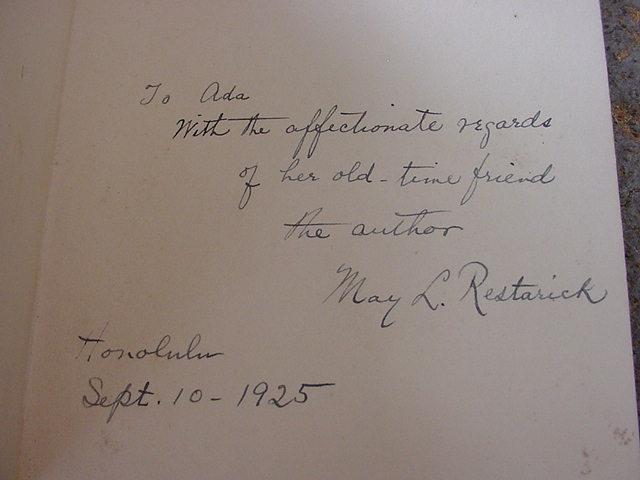 To Ada
With the affectionate regards
of her old-time friend
the author
May L. Restarick
Honolulu
Sept. 10 - 1925